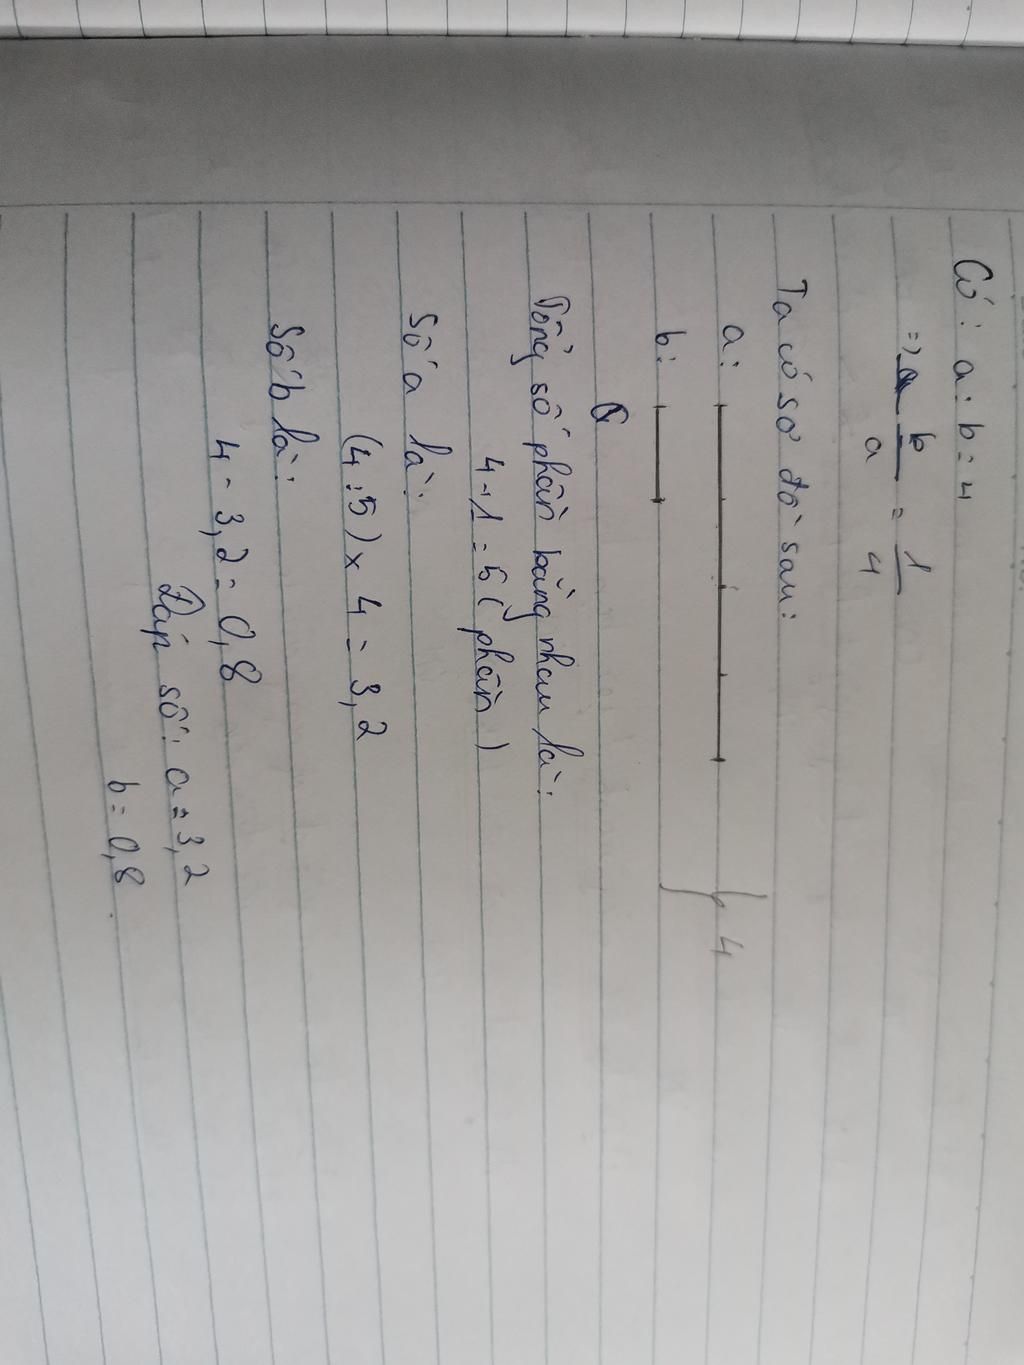 Có: a : b = 4
=> b/a = 1/4
Ta có sơ đồ sau:
a:
b:
4
Tổng số phần bằng nhau là:
4 + 1 = 5 ( phần )
Số a là:
(4 : 5) x 4 = 3,2
Số b là:
4 - 3,2 = 0,8
Đáp số: a = 3,2
b = 0,8